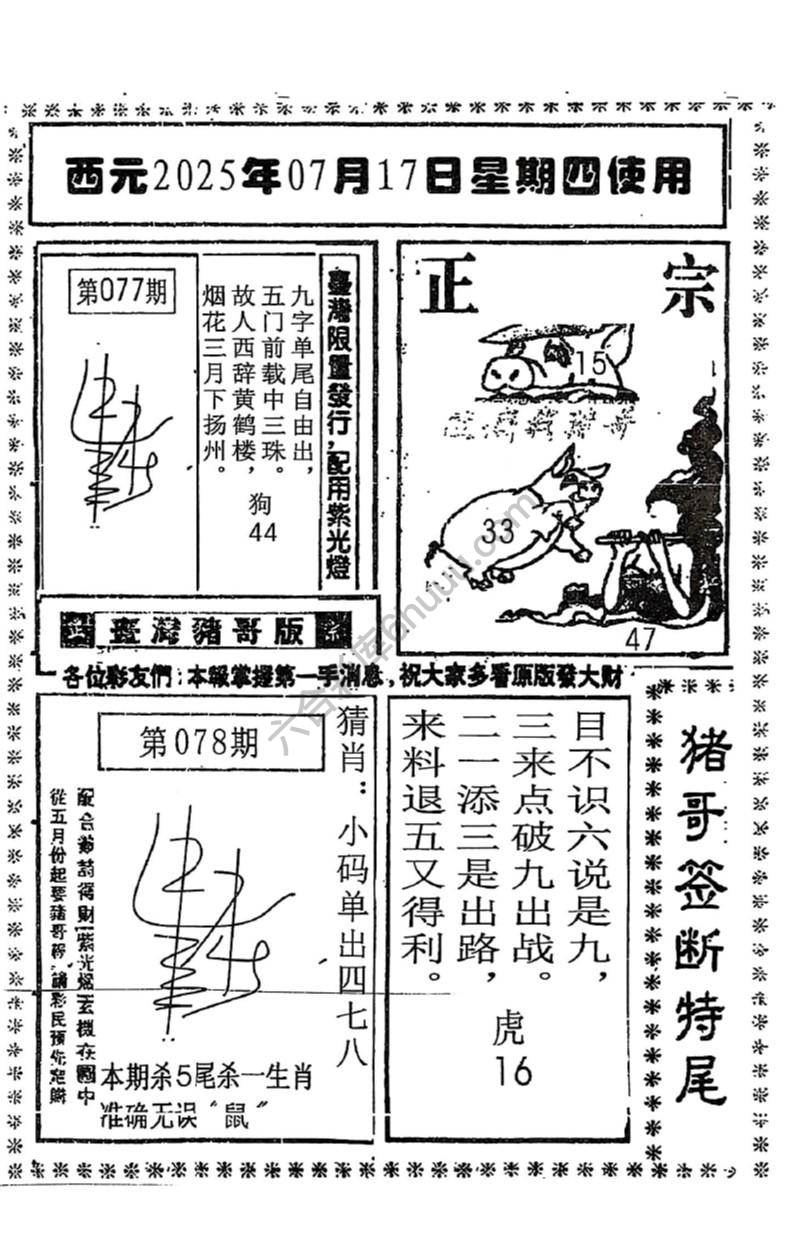 西元2025年07月17日星期四使用
第077期
臺灣限量發行,配用紫光燈
九字单尾自由出,
五门前载中三珠。
故人西辞黄鹤楼,
烟花三月下扬州。
狗
44
正宗
15
33
47
臺灣豬哥版
各位彩友們:本報掌握第一手消息,祝大家多看原版發大財
第078期
猜肖:小码单出四七八
從五月份起要豬哥報,請彩民預先定購
本期杀5尾杀一生肖
准确无误“鼠”
目不识六说是九,
三来点破九出战。
二一添三是出路,
来料退五又得利。
虎
16
猪哥签断特尾
六合彩库6huuu.com